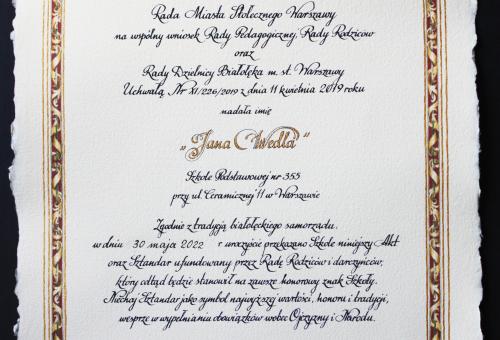 Rada Miasta Stołecznego Warszawy
na wspólny wniosek Rady Pedagogicznej, Rady Rodziców
oraz
Rady Dzielnicy Białołęka m. st. Warszawy
Uchwałą Nr XI/226/2019 z dnia 11 kwietnia 2019 roku
nadała imię
„Jana Wedla”
Szkole Podstawowej nr 355
przy ul. Ceramicznej 11 w Warszawie
Zgodnie z tradycją białołęckiego samorządu,
w dniu 30 maja 2022 r uroczyście przekazano Szkole niniejszy Akt
oraz Sztandar ufundowany przez Radę Rodziców i darczyńców,
który odtąd będzie stanowił na zawsze honorowy znak Szkoły.
Niechaj Sztandar jako symbol najwyższej wartości, honoru i tradycji,
wesprze w wypełnianiu obowiązków wobec Ojczyzny i Narodu.